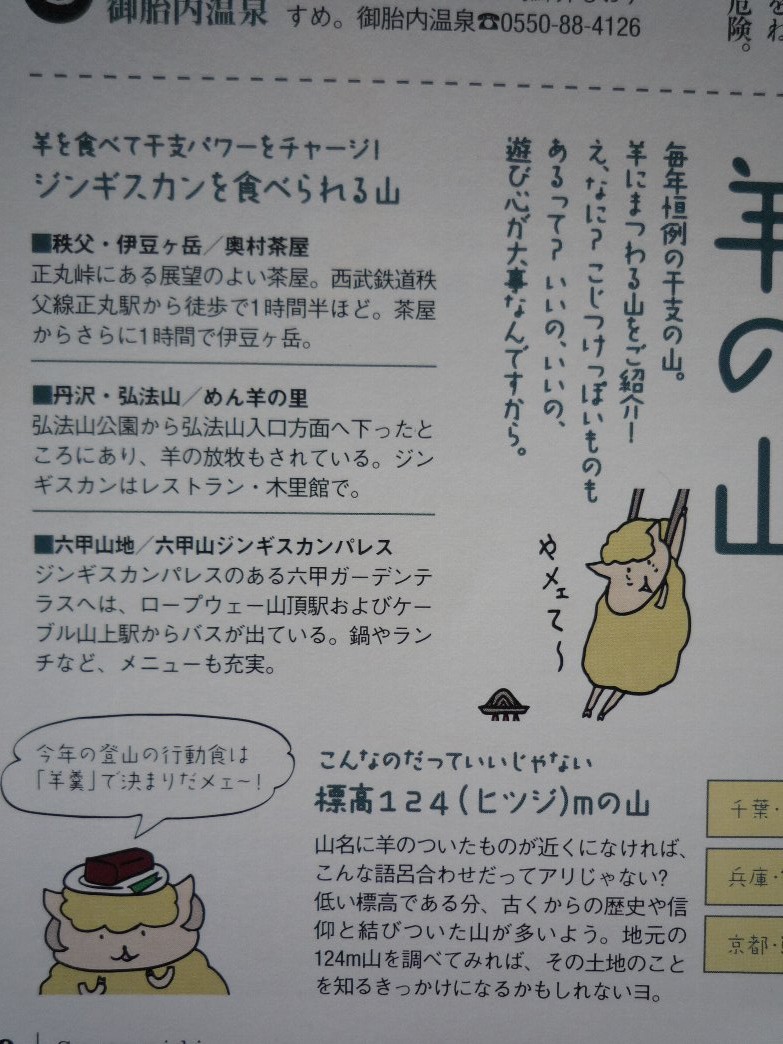 御胎内温泉
すめ。御胎内温泉☎0550-88-4126
危険。
羊の山
毎年恒例の干支の山。
羊にまつわる山をご紹介！
え、なに？こじつけっぽいものも
あるって？いいの、いいの、
遊び心が大事なんですから。
羊を食べて干支パワーをチャージ！
ジンギスカンを食べられる山
■秩父・伊豆ヶ岳／奥村茶屋
正丸峠にある展望のよい茶屋。西武鉄道秩
父線正丸駅から徒歩で1時間半ほど。茶屋
からさらに1時間で伊豆ヶ岳。
■丹沢・弘法山／めん羊の里
弘法山公園から弘法山入口方面へ下ったと
ころにあり、羊の放牧もされている。ジン
ギスカンはレストラン・木里館で。
■六甲山地／六甲山ジンギスカンパレス
ジンギスカンパレスのある六甲ガーデンテ
ラスへは、ロープウェー山頂駅およびケー
ブル山上駅からバスが出ている。鍋やラン
チなど、メニューも充実。
やメェて〜
今年の登山の行動食は
「羊羹」で決まりだメェ〜！
こんなのだっていいじゃない
標高124(ヒツジ)mの山
山名に羊のついたものが近くになければ、
こんな語呂合わせだってアリじゃない？
低い標高である分、古くからの歴史や信
仰と結びついた山が多いよう。地元の
124m山を調べてみれば、その土地のこと
を知るきっかけになるかもしれないヨ。
千葉・
兵庫・
京都・